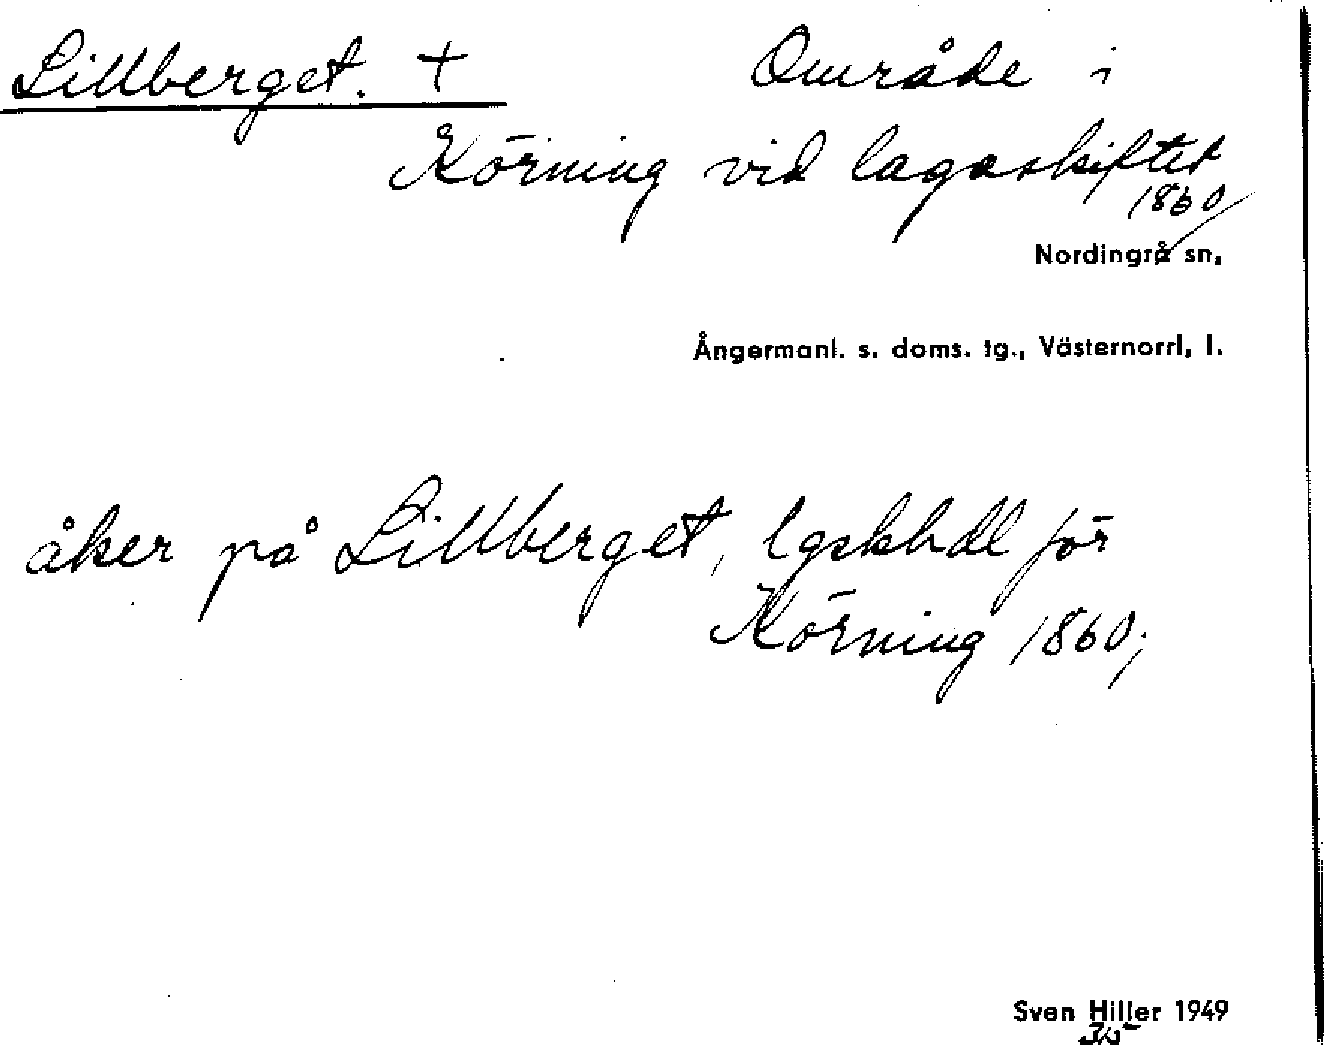 Lillberget. + Område i
Körning vid lagaskiftet
1860
Nordingrå sn.
Ångermanl. s. doms. tg., Västernorrl. l.
åker på Lillberget, lgskhdl för
Körning 1860;
Sven Hiller 1949